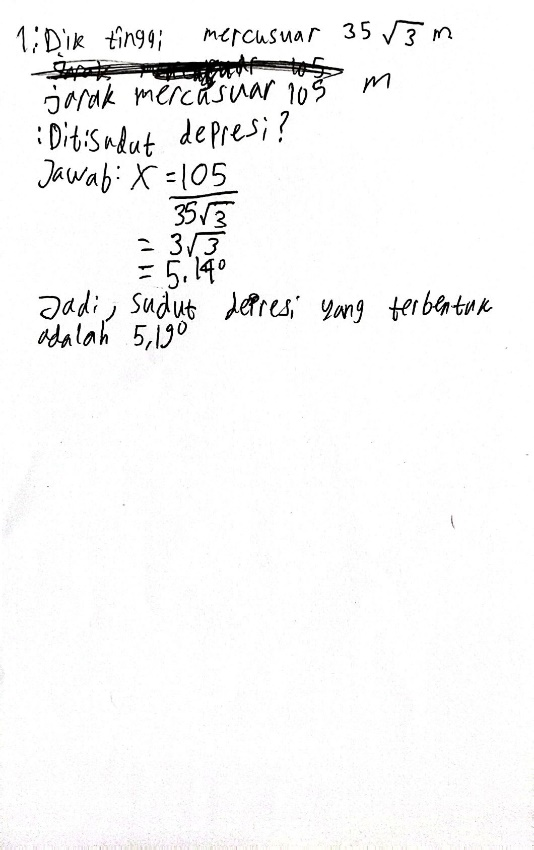 1. Dik tinggi mercusuar 35 √3 m
jarak mercusuar 105 m
: Dit: Sudut depresi?
Jawab: X = 105
35√3
= 3√3
= 5.14°
Jadi, sudut depresi yang terbentuk
adalah 5,19°